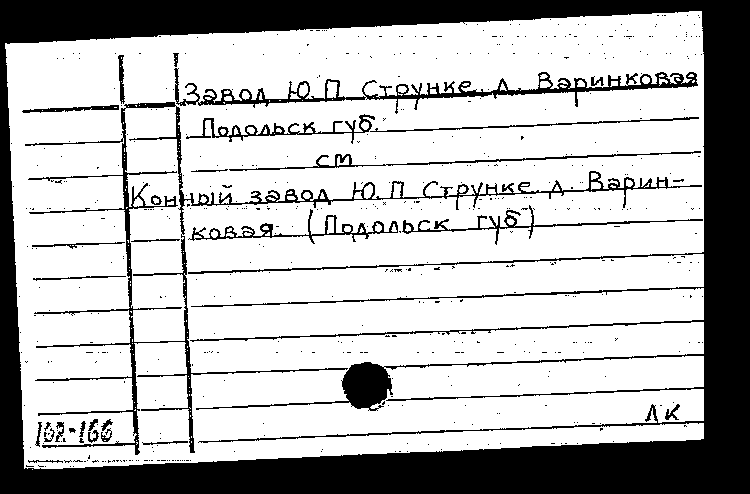 Завод Ю.П Струнке д. Варинковая
Подольск губ.
см
Конный завод Ю.П Струнке д. Варин-
ковая. (Подольск губ)
ЛК
162-166